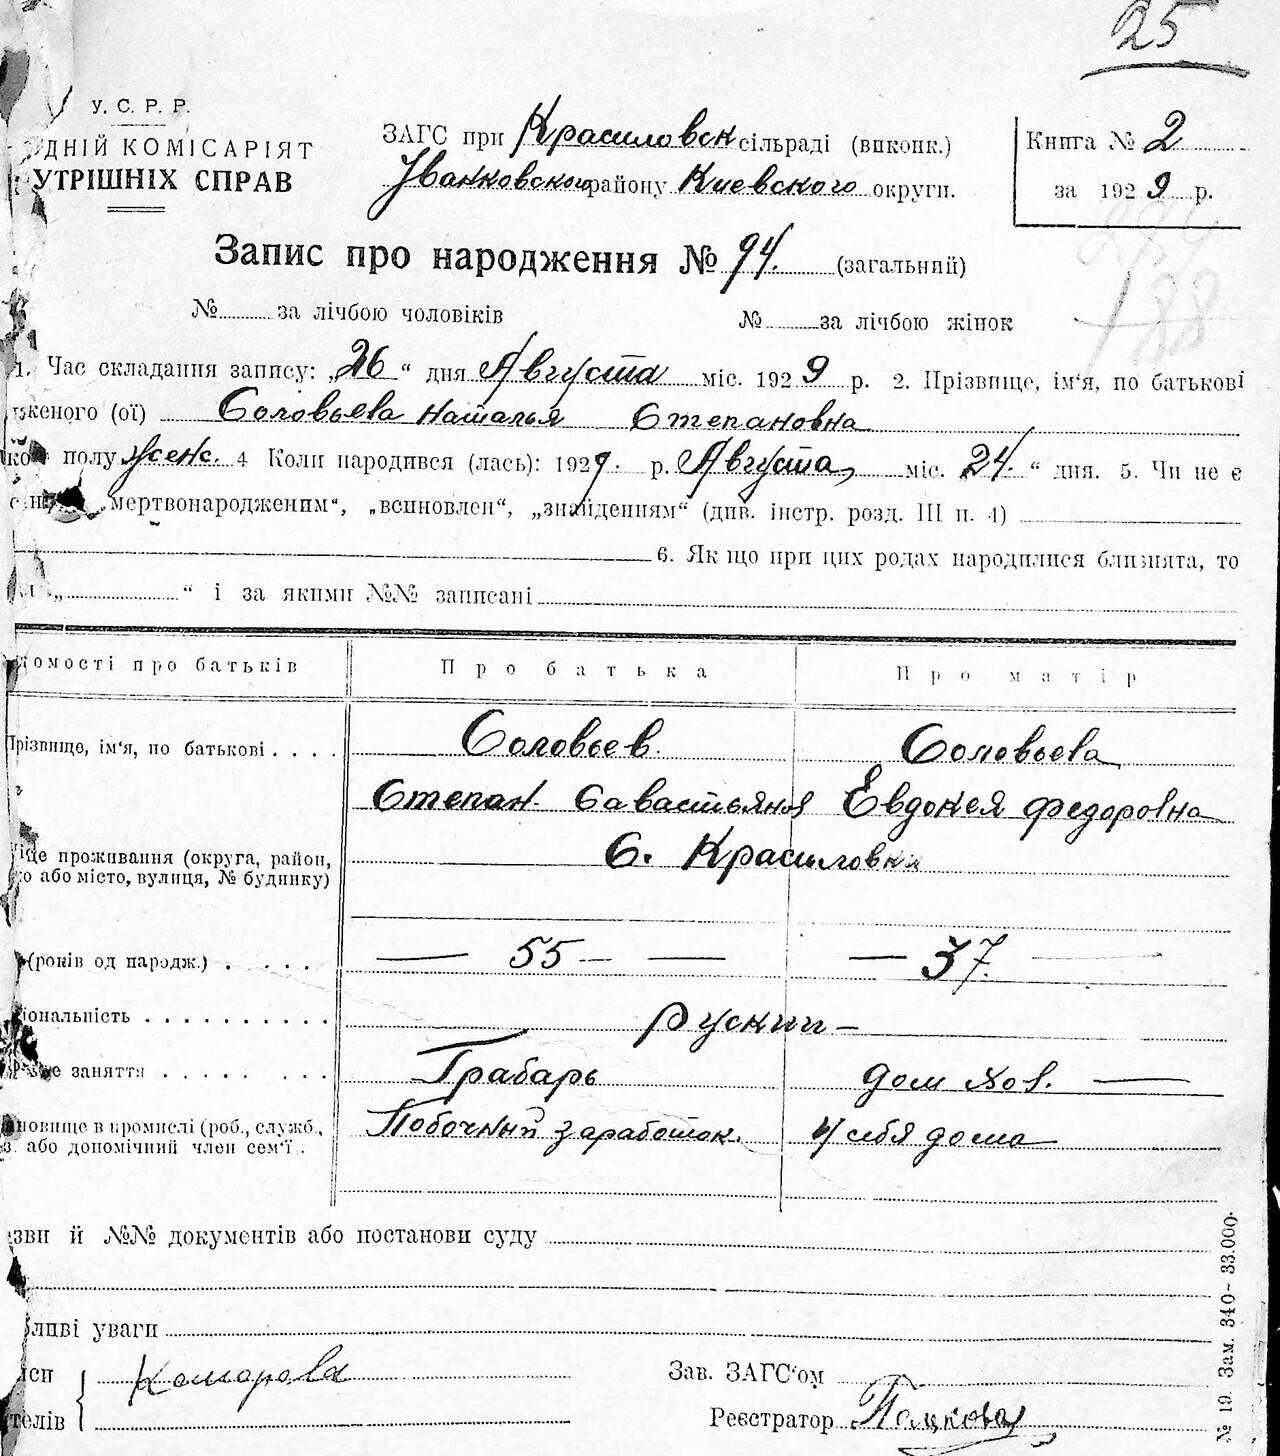 25
У. С. Р. Р.
ДНІЙ КОМІСАРІЯТ
УТРІШНІХ СПРАВ
ЗАГС при Красиловск сільраді (виконк.)
Іванковского району Киевского округи.
Книга № 2
за 1929 р.
Запис про народження № 94. (загальний)
188
№ за лічбою чоловіків № за лічбою жінок
1. Час складання запису: „26“ дня Августа міс. 1929 р. 2. Прізвище, ім'я, по батькові
женого (ої) Соловьева Наталья Степановна
полу женс. 4 Коли народився (лась): 1929. р. Августа, міс. 24. “ дня. 5. Чи не є
„мертвонародженим“, „всиновлен“, „знайденням“ (див. інстр. розд. III п. 4)
6. Якщо при цих родах народилися близнята, то
„ “ і за якими №№ записані
домості про батьків Про батька Про матір
Прізвище, ім'я, по батькові . . . . Соловьев. Соловьева
Степан Савастьянов Евдокея Федоровна
це проживання (округа, район, С. Красиловки
або місто, вулиця, № будинку)
(років од народж.) . . . . — 55 — — — 37. —
іональність . . . . . . . . . . Руский —
заняття . . . . . . . . Грабарь дом хоз. —
ановище в промислі (роб., служб., Побочный заработок. У себя дома
або допомічний член сем'ї .
зви й №№ документів або постанови суду
ливі уваги
Комарова Зав. ЗАГС'ом
телів Реєстратор
№ 19. Зам. 340– 33.000.